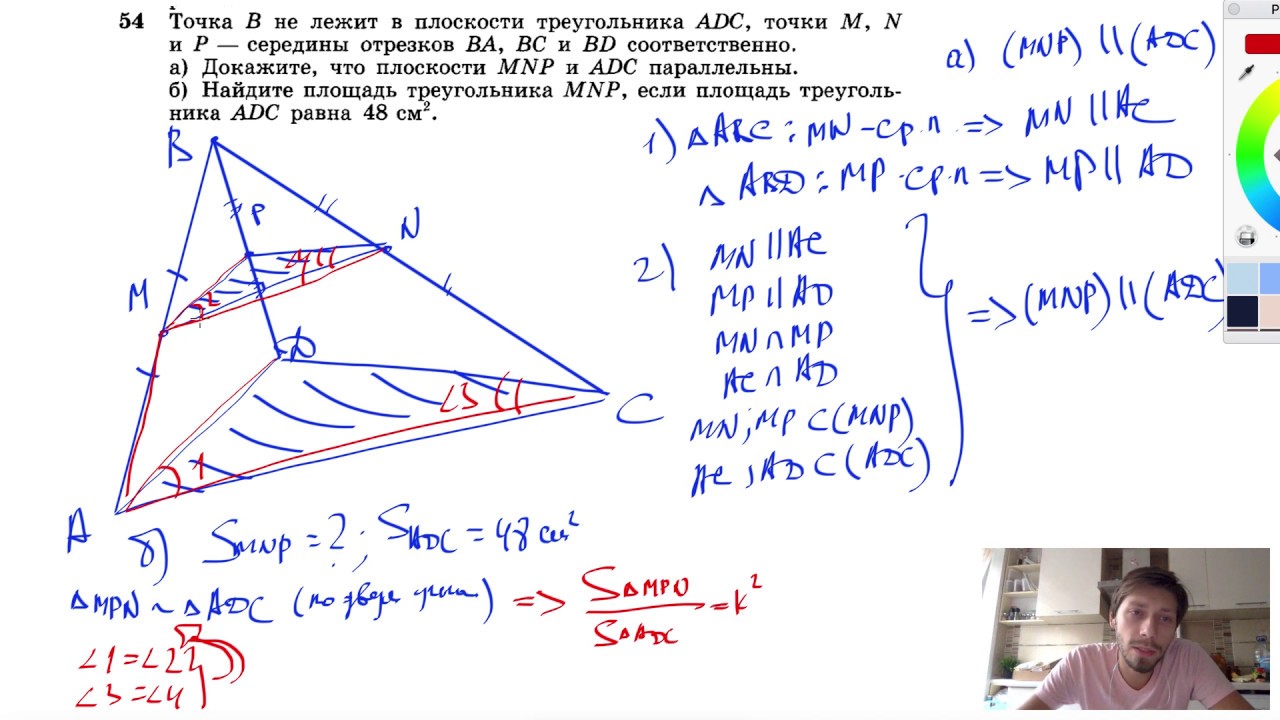 54 Точка B не лежит в плоскости треугольника ADC, точки M, N
и P — середины отрезков BA, BC и BD соответственно.
а) Докажите, что плоскости MNP и ADC параллельны.
б) Найдите площадь треугольника MNP, если площадь треуголь-
ника ADC равна 48 см².
а) (MNP) || (ADC)
1) △ABC : MN - ср.л. => MN || AC
△ ABD : MP - ср.л => MP || AD
2) MN || AC
MP || AD
MN ∩ MP
AC ∩ AD
MN; MP ⊂ (MNP)
AC; AD ⊂ (ADC)
=> (MNP) || (ADC)
B
P
N
M
D
C
A
∠4
∠2
∠3
1
б) S MNP = ? ; S ADC = 48 см²
△MPN ~ △ADC (по двум углам) => S△MPN / S△ADC = k²
∠1 = ∠2
∠3 = ∠4
P